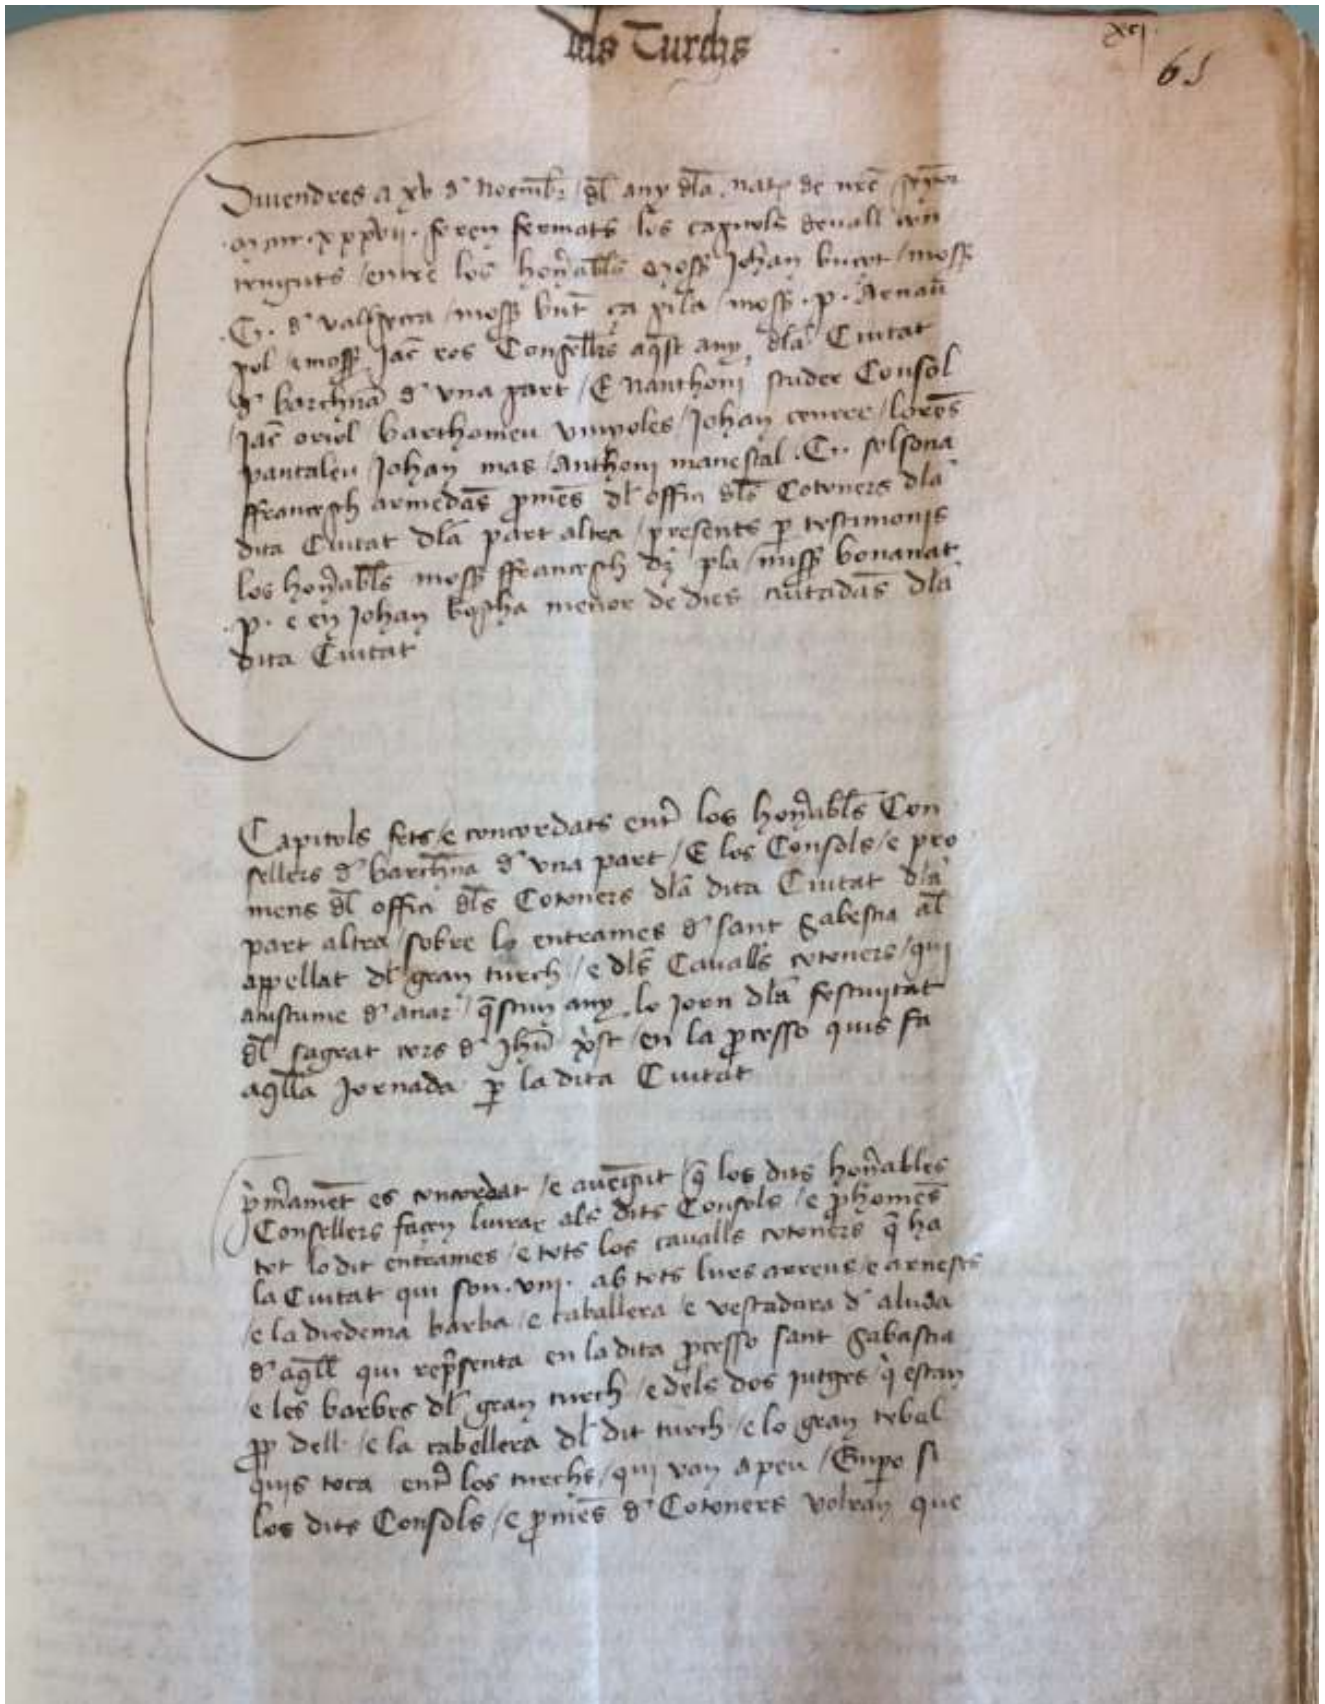 dels Turchs
xcj
61
Diuendres a xv d' Noembr' / dl any dla nat' de nre senyor
m cccc xxxvij foren fermats los capitols deuall con
tenguts / entre los honrables mossr Johan buçot / mossr
G. d' vallseca / mossr bnt ça pila / mossr p. Arnau
pol e mossr Jac ros Consellrs aqst any dla Ciutat
d' barchna d' vna part / E Nanthoni studer Consol
Jac oriol barthomeu vinyoles / Johan / lorens
pantaleu / Johan mas / Anthoni manescal . G. solsona
ffrancesch armedas pmens dl offici dls Cotoners dla
dita Ciutat dla part altra / presents p testimonis
los honrabls mossr ffrancesch dz pla / missr bonanat
p. e en Johan menor de dies ciutadans dla
dita Ciutat
Capitols fets / e concordats entr los honrabls Con
sellers d' barchna d' vna part / E los Consols / e pro
mens dl offici dls Cotoners dla dita Ciutat dla
part altra / sobre lo entrames d' sant Sabestia al
appellat dl gran turch / e dls Caualls cotoners / qui
acustume d' anar qscun any lo jorn dla festiuitat
dl sagrat cors d' Jhu xst / en la pcesso quis fa
aqlla jornada p la dita Ciutat
primament es concordat / e auengut / q los dits honrables
Consellers façen liurar als dits Consols / e phomens
tot lo dit entrames / e tots los caualls cotoners q ha
la Ciutat qui son .viii. ab tots lurs arreus / e arneses
/ e la diedema barba / e caballera / e vestadura d' aluda
d' aqll qui repsenta en la dita pcesso sant Sabastia
e les barbes dl gran turch / e dels dos jutges / q estan
pp dell / e la cabellera dl dit turch / e lo gran tabal
quis toca entr los turchs / qui van a peu / Empo si
los dits Consols / e pmens d' Cotoners volran que